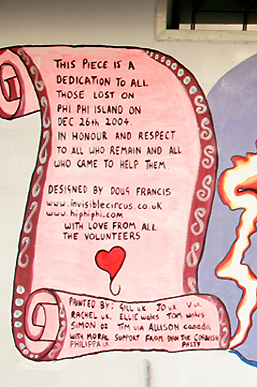 THIS PIECE IS A
DEDICATION TO ALL
THOSE LOST ON
PHI PHI ISLAND ON
DEC 26th 2004.
IN HONOUR AND RESPECT
TO ALL WHO REMAIN AND ALL
WHO CAME TO HELP THEM.
DESIGNED BY DOUG FRANCIS
www.invisiblecircus.co.uk
www.hiphiphi.com
WITH LOVE FROM ALL
THE VOLUNTEERS
PAINTED BY: GILL UK JO UK
RACHEL UK, ELLIE WALES TOM WALES
SIMON OZ TIM USA ALLISON canada
WITH MORAL SUPPORT FROM THE CORNISH
PHILIPPA UK PASTY